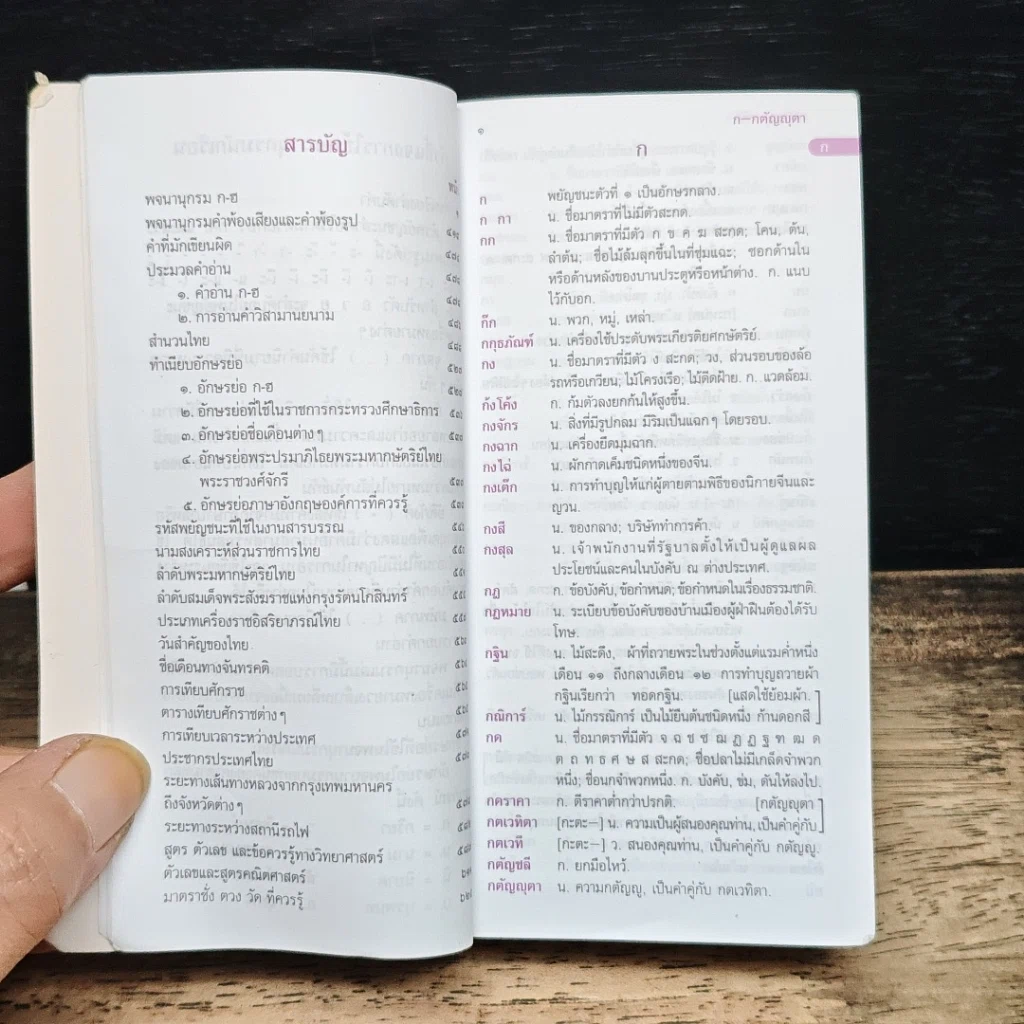 สารบัญ
พจนานุกรม ก-ฮ
พจนานุกรมคำพ้องเสียงและคำพ้องรูป
คำที่มักเขียนผิด
ประมวลคำอ่าน
๑. คำอ่าน ก-ฮ
๒. การอ่านคำวิสามานยนาม
สำนวนไทย
ทำเนียบอักษรย่อ
๑. อักษรย่อ ก-ฮ
๒. อักษรย่อที่ใช้ในราชการกระทรวงศึกษาธิการ
๓. อักษรย่อชื่อเดือนต่างๆ
๔. อักษรย่อพระปรมาภิไธยพระมหากษัตริย์ไทย
พระราชวงศ์จักรี
๕. อักษรย่อภาษาอังกฤษองค์การที่ควรรู้
รหัสพยัญชนะที่ใช้ในงานสารบรรณ
นามสงเคราะห์ส่วนราชการไทย
ลำดับพระมหากษัตริย์ไทย
ลำดับสมเด็จพระสังฆราชแห่งกรุงรัตนโกสินทร์
ประเภทเครื่องราชอิสริยาภรณ์ไทย
วันสำคัญของไทย
ชื่อเดือนทางจันทรคติ
การเทียบศักราช
ตารางเทียบศักราชต่างๆ
การเทียบเวลาระหว่างประเทศ
ประชากรประเทศไทย
ระยะทางเส้นทางหลวงจากกรุงเทพมหานคร
ถึงจังหวัดต่างๆ
ระยะทางระหว่างสถานีรถไฟ
สูตร ตัวเลข และข้อควรรู้ทางวิทยาศาสตร์
ตัวเลขและสูตรคณิตศาสตร์
มาตราชั่ง ตวง วัด ที่ควรรู้
๑
ก–กตัญญุตา
ก
ก
ก พยัญชนะตัวที่ ๑ เป็นอักษรกลาง.
ก กา น. ชื่อมาตราที่ไม่มีตัวสะกด.
กก น. ชื่อมาตราที่มีตัว ก ข ค ฆ สะกด; โคน, ต้น,
ลำต้น; ชื่อไม้ล้มลุกขึ้นในที่ชุ่มแฉะ; ซอกด้านใน
หรือด้านหลังของบานประตูหรือหน้าต่าง. ก. แนบ
ไว้กับอก.
ก๊ก น. พวก, หมู่, เหล่า.
กกุธภัณฑ์ น. เครื่องใช้ประดับพระเกียรติยศกษัตริย์.
กง น. ชื่อมาตราที่มีตัว ง สะกด; วง, ส่วนรอบของล้อ
รถหรือเกวียน; ไม้โครงเรือ; ไม้ดีดฝ้าย. ก. แวดล้อม.
ก้งโค้ง ก. ก้มตัวลงยกก้นให้สูงขึ้น.
กงจักร น. สิ่งที่มีรูปกลม มีริมเป็นแฉกๆ โดยรอบ.
กงฉาก น. เครื่องยึดมุมฉาก.
กงไฉ่ น. ผักกาดเค็มชนิดหนึ่งของจีน.
กงเต๊ก น. การทำบุญให้แก่ผู้ตายตามพิธีของนิกายจีนและ
ญวน.
กงสี น. ของกลาง; บริษัททำการค้า.
กงสุล น. เจ้าพนักงานที่รัฐบาลตั้งให้เป็นผู้ดูแลผล
ประโยชน์และคนในบังคับ ณ ต่างประเทศ.
กฎ ก. ข้อบังคับ, ข้อกำหนด; ข้อกำหนดในเรื่องธรรมชาติ.
กฎหมาย น. ระเบียบข้อบังคับของบ้านเมืองผู้ฝ่าฝืนต้องได้รับ
โทษ.
กฐิน น. ไม้สะดึง, ผ้าที่ถวายพระในช่วงตั้งแต่แรมค่ำหนึ่ง
เดือน ๑๑ ถึงกลางเดือน ๑๒ การทำบุญถวายผ้า
กฐินเรียกว่า ทอดกฐิน. [แสดใช้ย้อมผ้า.
กณิการ์ น. ไม้กรรณิการ์ เป็นไม้ยืนต้นชนิดหนึ่ง ก้านดอกสี
กด น. ชื่อมาตราที่มีตัว จ ฉ ช ซ ฌ ฎ ฏ ฐ ฑ ฒ ด
ต ถ ท ธ ศ ษ ส สะกด; ชื่อปลาไม่มีเกล็ดจำพวก
หนึ่ง; ชื่อนกจำพวกหนึ่ง. ก. บังคับ, ข่ม, ดันให้ลงไป.
กดราคา ก. ตีราคาต่ำกว่าปรกติ. [กตัญญุตา
กตเวทิตา [กะตะ–] น. ความเป็นผู้สนองคุณท่าน, เป็นคำคู่กับ
กตเวที [กะตะ–] ว. สนองคุณท่าน, เป็นคำคู่กับ กตัญญู.
กตัญชลี ก. ยกมือไหว้.
กตัญญุตา น. ความกตัญญู, เป็นคำคู่กับ กตเวทิตา.